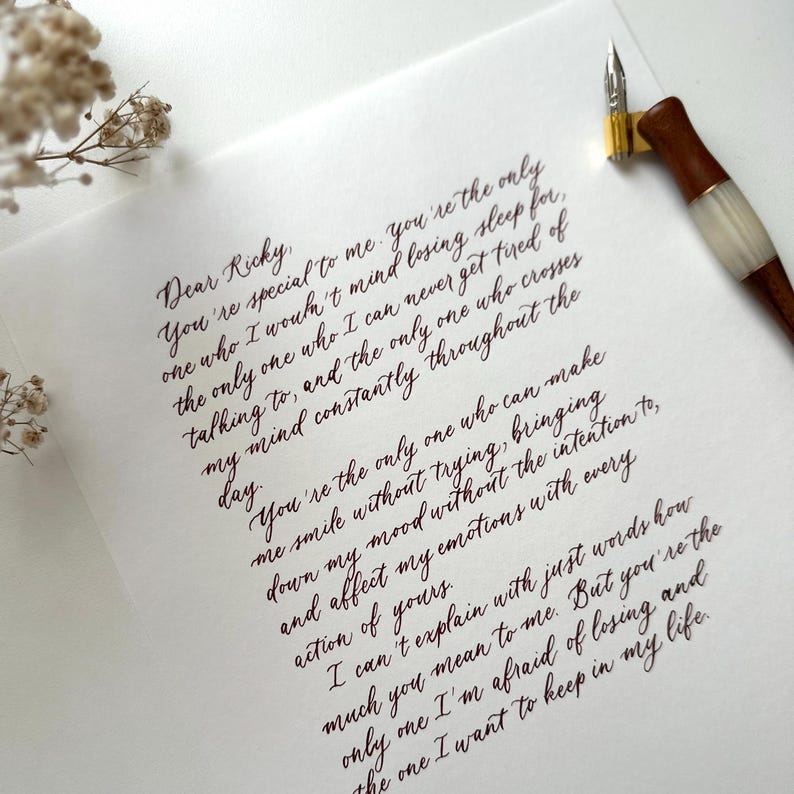 Dear Ricky,
You're special to me. You're the only
one who I wouln't mind losing sleep for,
the only one who I can never get tired of
talking to, and the only one who crosses
my mind constantly throughout the
day.
You're the only one who can make
me smile without trying, bringing
down my mood without the intention to,
and affect my emotions with every
action of yours.
I can't explain with just words how
much you mean to me. But you're the
only one I'm afraid of losing and
the one I want to keep in my life.